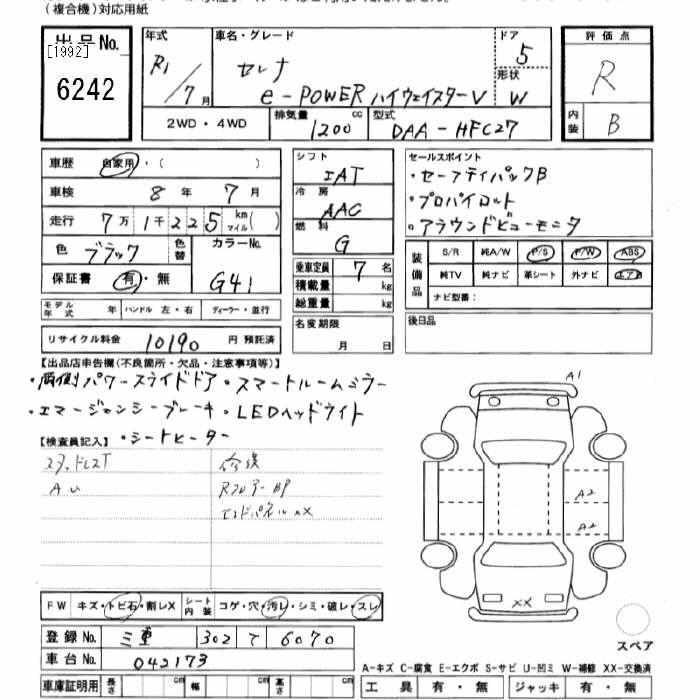 (複合機)対応用紙
出品No.
[1992]
6242
年式
R1/7月
車名・グレード
セレナ
e-POWER ハイウェイスターV
ドア
5
形状
W
評価点
R
内装
B
2WD・4WD
排気量
1200 cc
型式
DAA-HFC27
車歴 自家用・( )
車検 8年 7月
走行 7万1千225 km マイル( )
色 ブラック
色替
カラーNo.
G41
保証書 有・無
モデル年式 年 ハンドル 左・右 ディーラー・並行
リサイクル料金 10190 円 預託済
シフト
IAT
冷房
AAC
燃料
G
乗車定員 7 名
積載量 kg
総重量 kg
名変期限
月 日
セールスポイント
・セーフティパックB
・プロパイロット
・アラウンドビューモニタ
装備品
S/R 純A/W P/S P/W ABS
純TV 純ナビ 革シート 外ナビ エアB
ナビ型番:
後日品
【出品店申告欄(不良箇所・欠品・注意事項等)】
・両側パワースライドドア・スマートルームミラー
・エマージェンシーブレーキ・LEDヘッドライト
・シートヒーター
【検査員記入】
AU
修復
エンドパネルXX
A1
A2
A2
XX
スペア
FW キズ・トビ石・割レX
シート内装 コゲ・穴・汚レ・シミ・破レ・スレ
登録No. 三重 302 て 6070
車台No. 042173
車庫証明用 長さ cm 幅 cm 高さ cm
A-キズ C-腐食 E-エクボ S-サビ U-凹ミ W-補修 XX-交換済
工具 有・無 ジャッキ 有・無